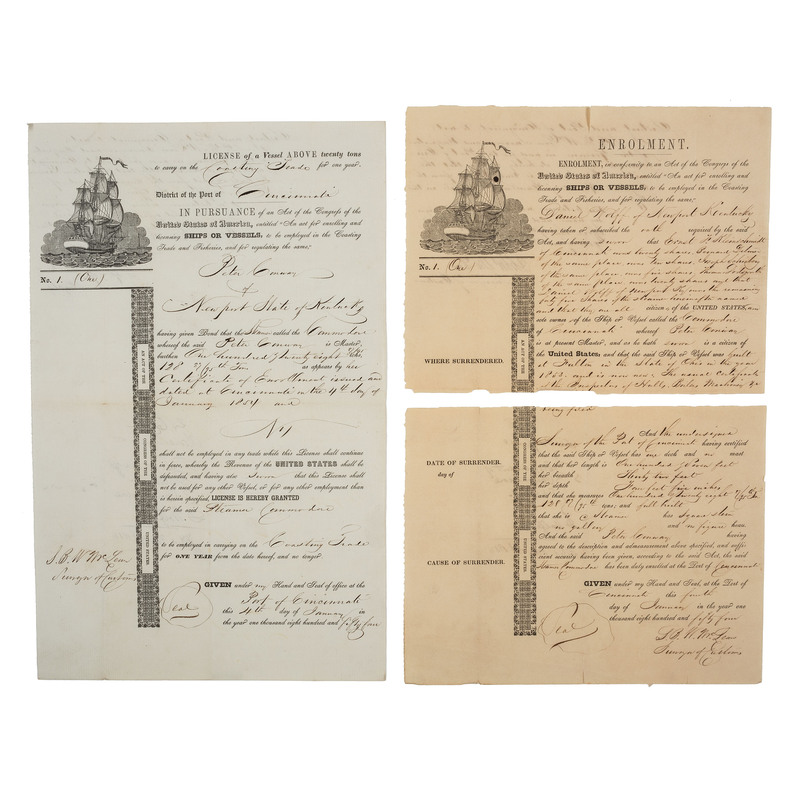 LICENSE of a Vessel ABOVE twenty tons
to carry on the Coasting Trade for one year.
District of the Port of Cincinnati
IN PURSUANCE of an Act of the Congress of the
United States of America, entitled "An act for enrolling and
licensing SHIPS OR VESSELS, to be employed in the Coasting
Trade and Fisheries, and for regulating the same,"
No. 1. (One)
Peter Conway
of
Newport State of Kentucky
having given Bond that the Steamer called the Commodore
whereof the said Peter Conway is Master,
burthen One hundred & twenty eight Tons,
128 Tons as appears by her
Certificate of Enrolment issued and
dated at Cincinnati on the 4th day of
January 1854 and
No 1
shall not be employed in any trade while this License shall continue
in force, whereby the Revenue of the UNITED STATES shall be
defrauded, and having also sworn that this License shall
not be used for any other Vessel, or for any other employment than
is herein specified, LICENSE IS HEREBY GRANTED
for the said Steamer Commodore
to be employed in carrying on the Coasting Trade
for ONE YEAR from the date hereof, and no longer.
AN ACT OF THE
CONGRESS OF THE
UNITED STATES
S. B. W. McLean
Surveyor of Customs
GIVEN under my Hand and Seal of office at the
Port of Cincinnati
this 4th day of January in
the year one thousand eight hundred and fifty four
Seal
ENROLMENT.
ENROLMENT, in conformity to an Act of the Congress of the
United States of America, entitled "An act for enrolling and
licensing SHIPS OR VESSELS, to be employed in the Coasting
Trade and Fisheries, and for regulating the same,"
No. 1. (One)
Daniel Wolff of Newport Kentucky
having taken or subscribed the oath required by the said
Act, and having sworn that
of Cincinnati
of the same place
of the same place
of the same place twenty shares and that
Daniel Wolff of Newport
forty five Shares of the steamer hereinafter named
and that they are all citizens of the UNITED STATES, are
sole owners of the Ship or Vessel called the Commodore
of Cincinnati whereof Peter Conway
is at present Master, and as he hath sworn is a citizen of
the United States, and that the said Ship or Vessel was built
at Fulton in the State of Ohio in the year
1852 and is now new
WHERE SURRENDERED.
AN ACT OF THE
being filed
And the undersigned
Surveyor of the Port of Cincinnati having certified
that the said Ship or Vessel has one deck and no mast
and that her length is One hundred & seven feet
her breadth Twenty two feet
her depth Four feet five inches
and that she measures One hundred & twenty eight
128 tons; and full built
that she is a Steamer has square stern
no gallery and no figure head
And the said Peter Conway having
agreed to the description and admeasurement above specified, and suffi-
cient security having been given, according to the said Act, the said
Steamer Commodore has been duly enrolled at the Port of Cincinnati
DATE OF SURRENDER.
day of
CAUSE OF SURRENDER.
CONGRESS OF THE
UNITED STATES
GIVEN under my Hand and Seal, at the Port of
Cincinnati this fourth
day of January in the year one
thousand eight hundred and fifty four
Seal
S. B. W. McLean
Surveyor of Customs